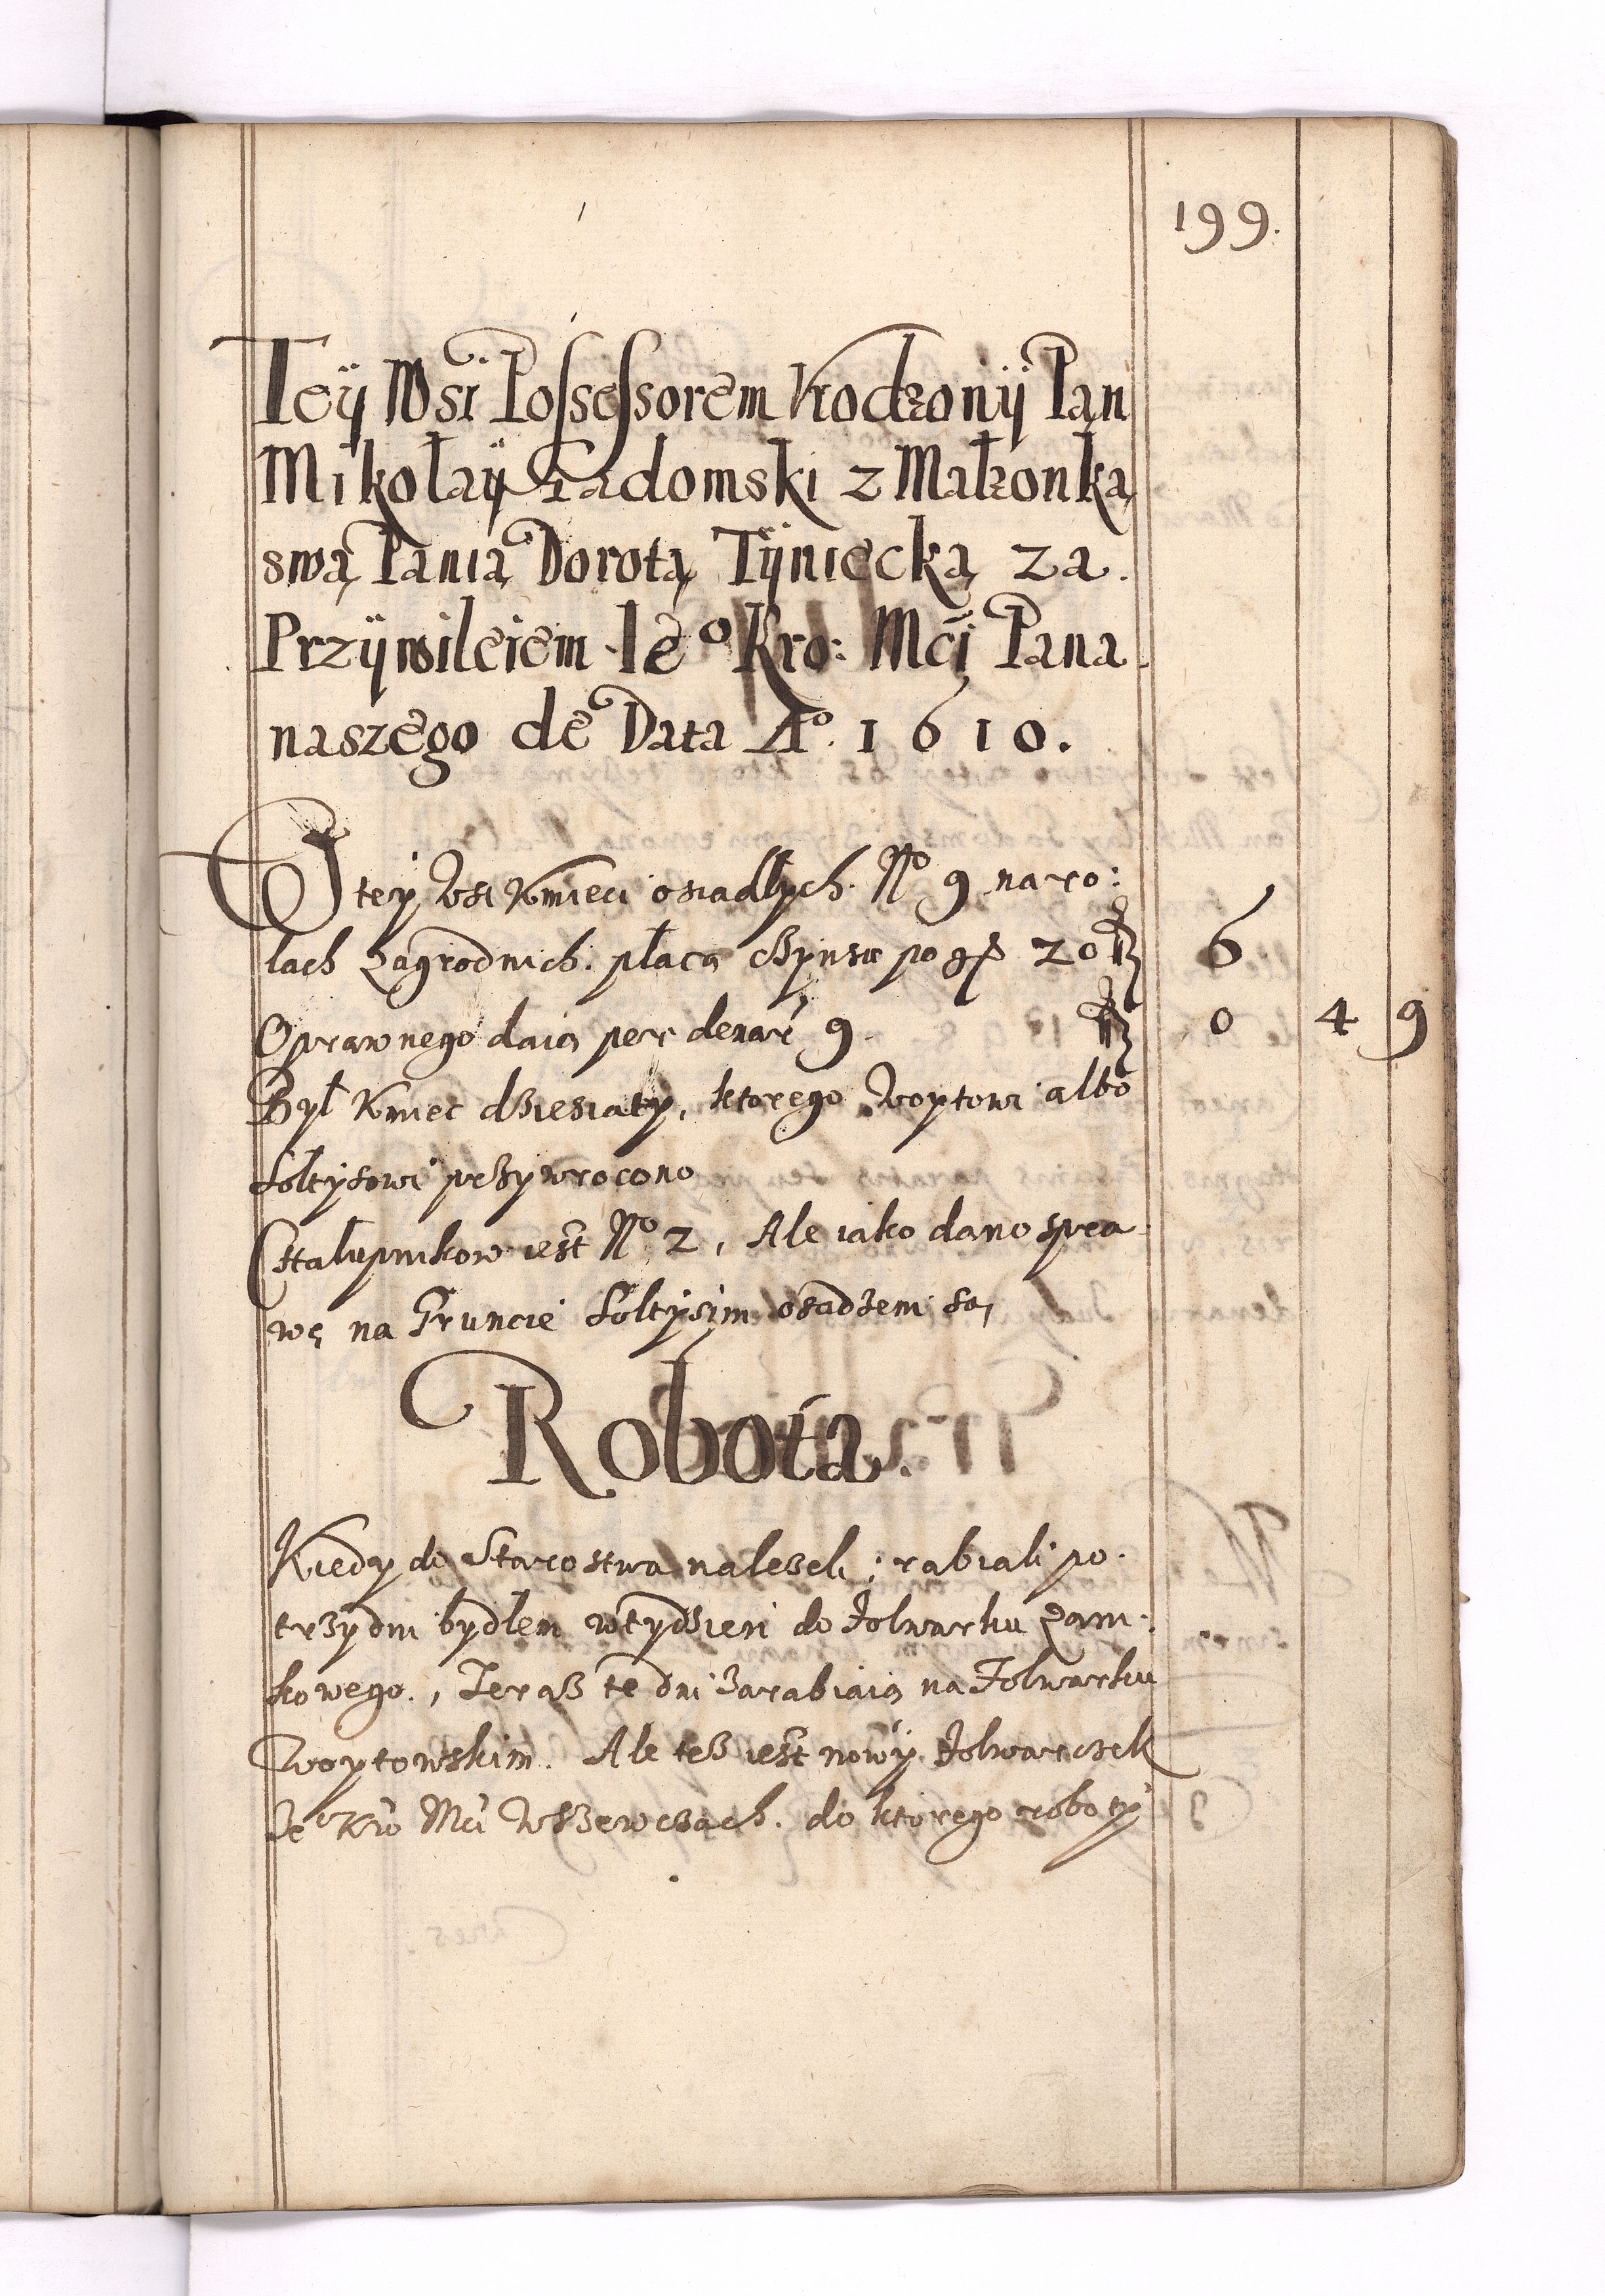 199.
Teÿ Wsi Possessorem Vrodzonÿ Pan
Mikołaÿ Radomski z Małzonką
swą Panią Dorotą Tÿniecką za
Przÿwileiem Ie⁰ Kro: Mći Pana
naszego de Data A⁰. 1610.
W tey Wsi Kmieci osiadłych. N⁰ 9 na ro:
lach Zagrodnich. płacą Czynszu po gr 20 f 6
Oprawnego daią per denar 9. f 0 4 9
Był Kmiec dziesiaty, ktorego Woytowi albo
Sołtysowi przywrocono
Chałupnikow iest N⁰ 2, Ale iako dano spra
wę na Gruncie Sołtysim osadzeni są,
Robota.
Kiedy do Starostwa nalezeli; rabiali po
trzy dni bydłem w tydzien do Folwarku Zam:
kowego., Teraz te dni zarabiaią na Folwarku
Woytowskim. Ale tez iest nowy Folwarczek
Ie⁰ Kro Mći do ktorego roboty